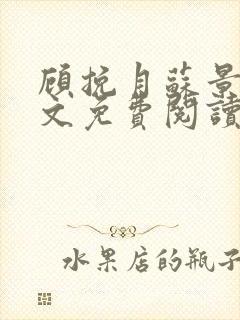 顾挽月蘇景
文免費閱讀
水果店的瓶子